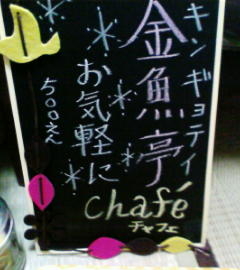 キンギョテイ
金魚亭
お気軽に
500えん
chafé
チャフェ